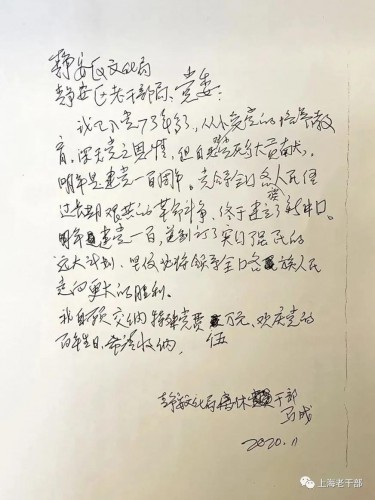 静安区文化局
静安区老干部局、党委:
我已入党73年多了,从小受党的培养教
育,深受党之恩情,但自愧无较大贡献。
明年是建党一百周年。党领导全国各族人民经
过长期艰苦的革命斗争,终于建立了新中国。
明年建党一百,党制订了实行强民的
远大计划,坚信必将领导全国各族人民
走向更大的胜利。
我自愿交纳特殊党费伍万元,欢庆党的
百年生日,希请收纳。
静安文化局离休干部
马成
2020.11
上海老干部